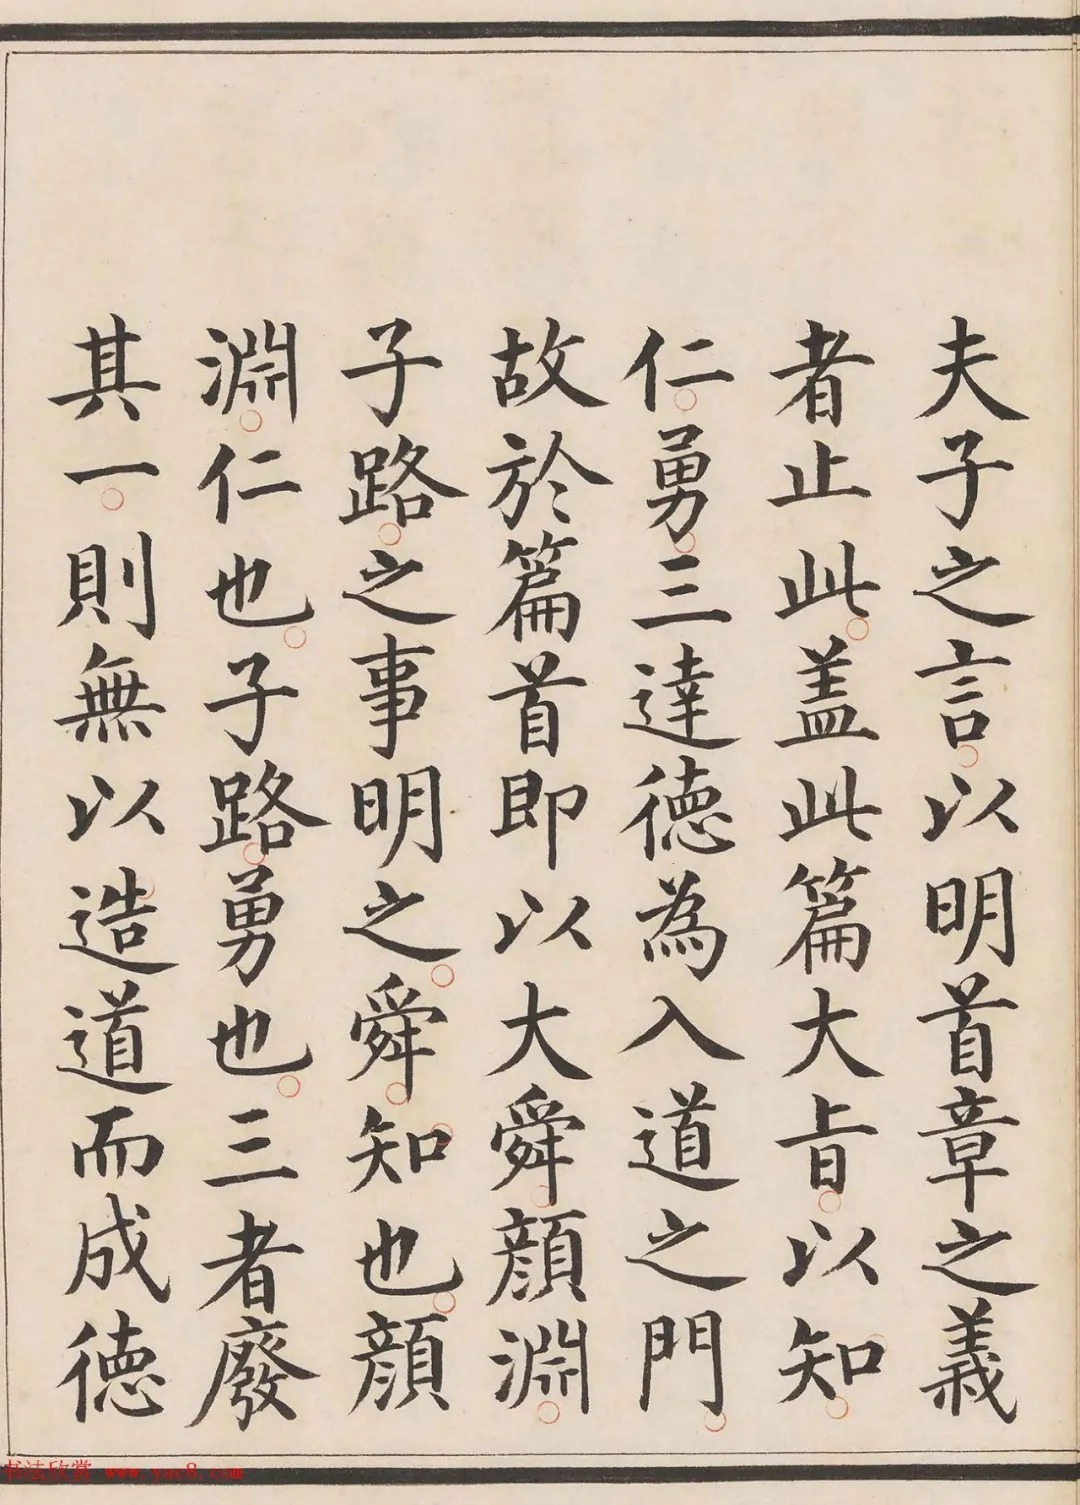 夫子之言以明首章之義
者止此盖此篇大旨以知
仁勇三達德為入道之門
故於篇首即以大舜顔淵
子路之事明之舜知也顔
淵仁也子路勇也三者廢
其一則無以造道而成德
书法欣赏 www.yac8.com